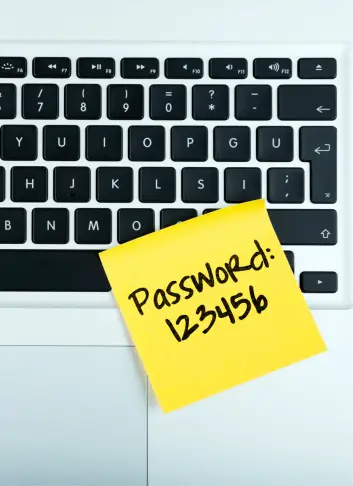 F6 F7 F8 F9 F10 F11 F12
/ 7 ( 8 ) 9 = 0 ? * _ -
Y U I O P G U
H J K L S I ; ,
B N M
Password:
123456